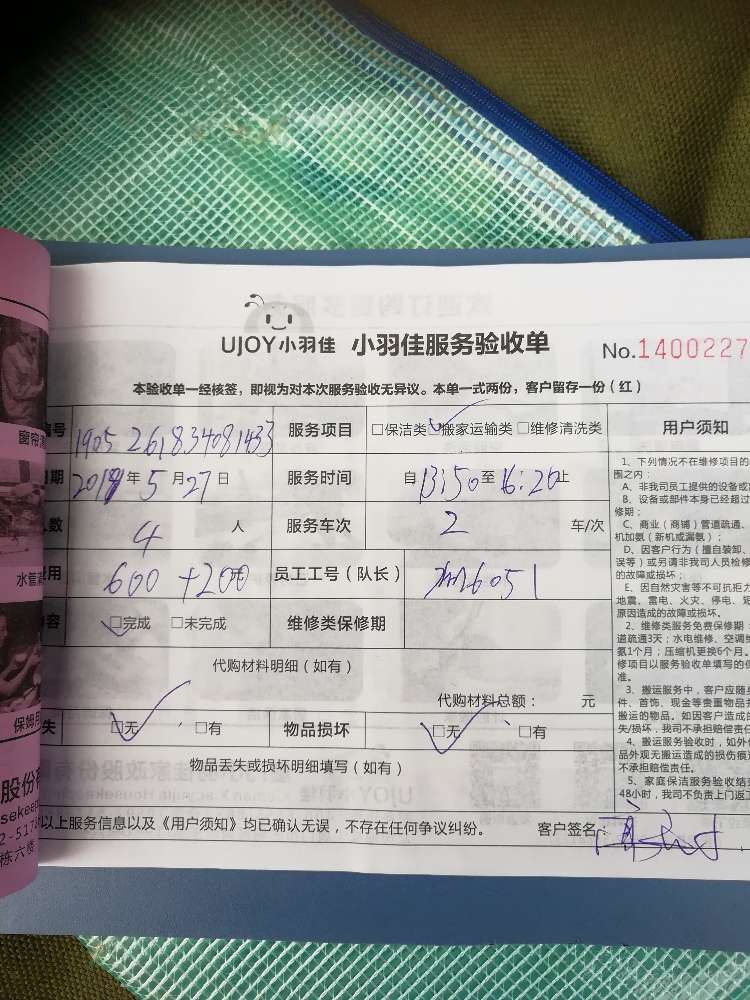 UJOY小羽佳 小羽佳服务验收单 No.1400227
本验收单一经核签，即视为对本次服务验收无异议。本单一式两份，客户留存一份（红）
号 1905 261834081433 服务项目 □保洁类□搬家运输类□维修清洗类 用户须知
期 2019年5月27日 服务时间 自13:50至16:20止
人数 4 人 服务车次 2 车/次
费用 600 +200元 员工工号（队长） 6051
内容 □完成 □未完成 维修类保修期
代购材料明细（如有）
代购材料总额： 元
失 □无 、□有 物品损坏 □无 □有
物品丢失或损坏明细填写（如有）
以上服务信息以及《用户须知》均已确认无误，不存在任何争议纠纷。 客户签名：
1、下列情况不在维修项目的
围之内：
A、非我司员工提供的设备或
B、设备或部件本身已经超过
修期；
C、商业（商铺）管道疏通、
机加氨（新机或漏氨）；
D、因客户行为（擅自装卸、
误等）或另请非我司人员检修
的故障或损坏；
E、因自然灾害等不可抗拒力
地震、雷电、火灾、停电、短
原因造成的故障或损坏。
2、维修类服务免费保修期：
道疏通3天；水电维修、空调维
氨1个月；压缩机更换6个月。
修项目以服务验收单填写的
准。
3、搬运服务中，客户应随身
件、首饰、现金等贵重物品
搬运的物品。如因客户造成的
失/损坏，我司不承担赔偿责任
4、搬运服务验收时，如外包
品外观无搬运造成的损伤痕
不承担赔偿责任。
5、家庭保洁服务验收结束
48小时，我司不负责上门返工
窗帘清
水管
保姆月
股份有
sekeep
2-517
栋六楼